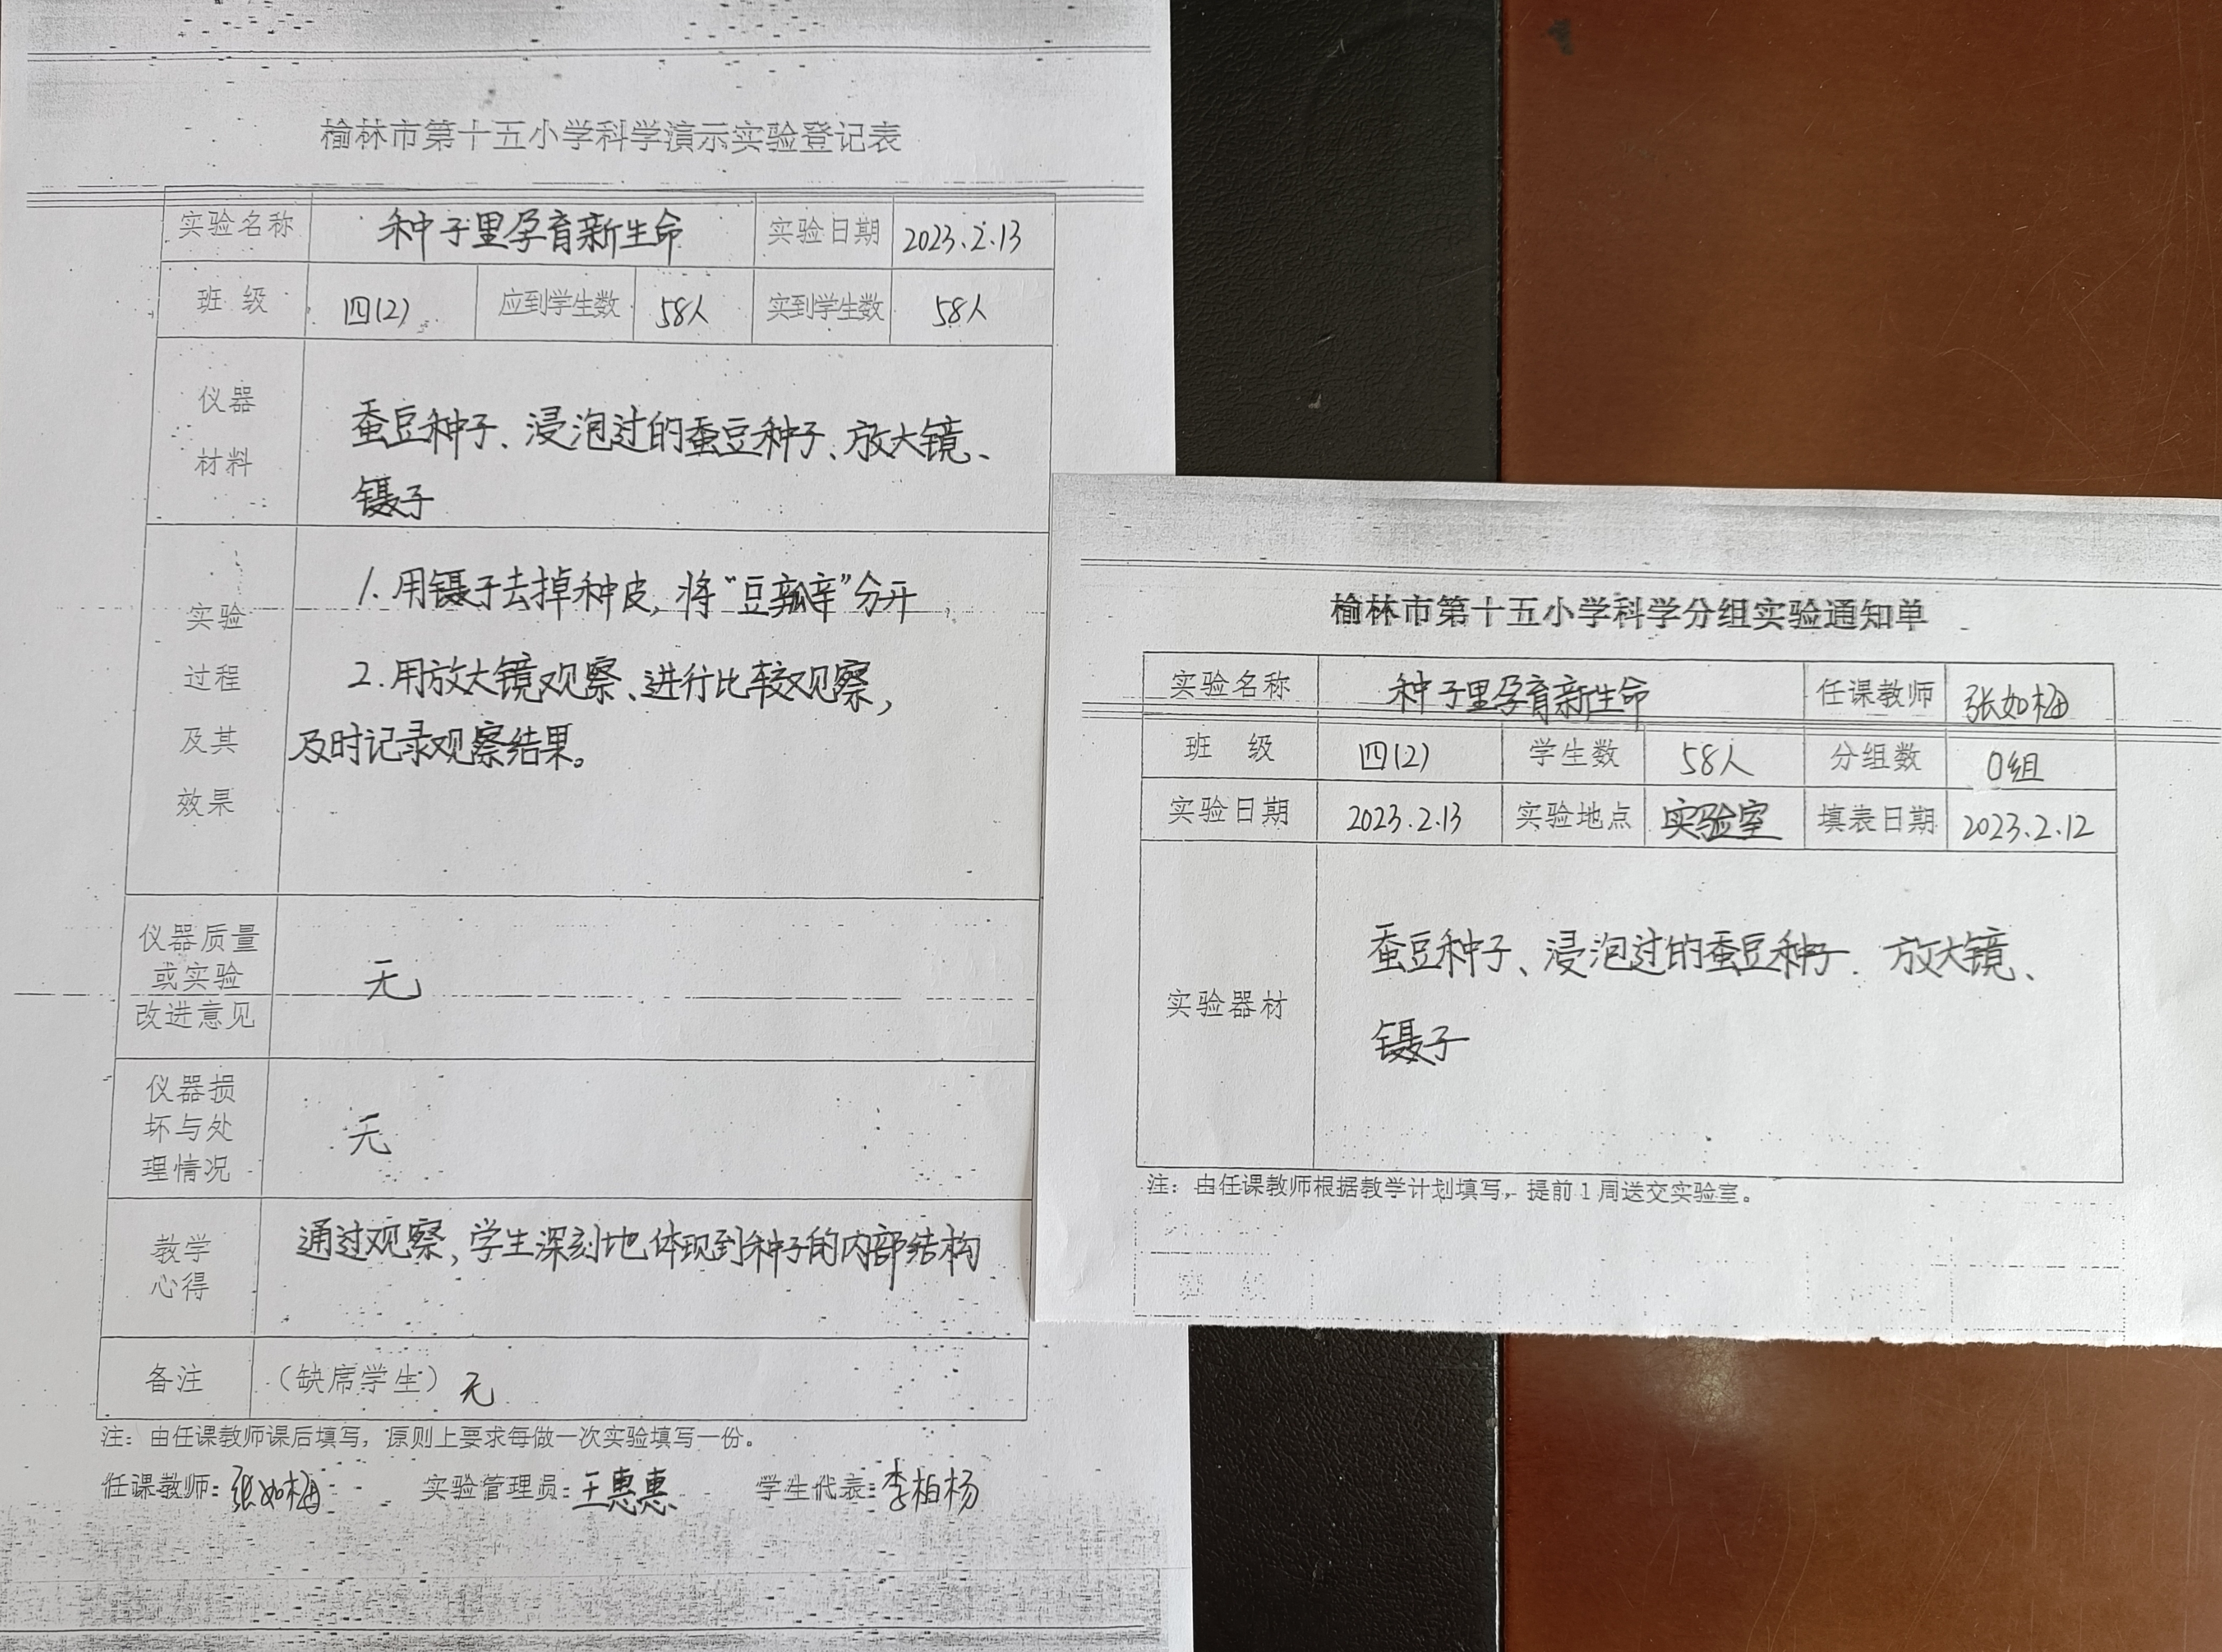 榆林市第十五小学科学演示实验登记表
实验名称 种子里孕育新生命 实验日期 2023.2.13
班 级 四(2) 应到学生数 58人 实到学生数 58人
仪器
材料
蚕豆种子、浸泡过的蚕豆种子、放大镜、
镊子
实验
过程
及其
效果
1.用镊子去掉种皮,将“豆瓣”分开
2.用放大镜观察、进行比较观察,
及时记录观察结果。
仪器质量
或实验
改进意见
无
仪器损
坏与处
理情况
无
教学
心得
通过观察,学生深刻地体现到种子的内部结构
备注 (缺席学生) 无
注:由任课教师课后填写,原则上要求每做一次实验填写一份。
任课教师:张如梅 实验管理员:王惠惠 学生代表:李柏杨
榆林市第十五小学科学分组实验通知单
实验名称 种子里孕育新生命 任课教师 张如梅
班 级 四(2) 学生数 58人 分组数 0组
实验日期 2023.2.13 实验地点 实验室 填表日期 2023.2.12
实验器材
蚕豆种子、浸泡过的蚕豆种子、放大镜、
镊子
注:由任课教师根据教学计划填写,提前1周送交实验室。